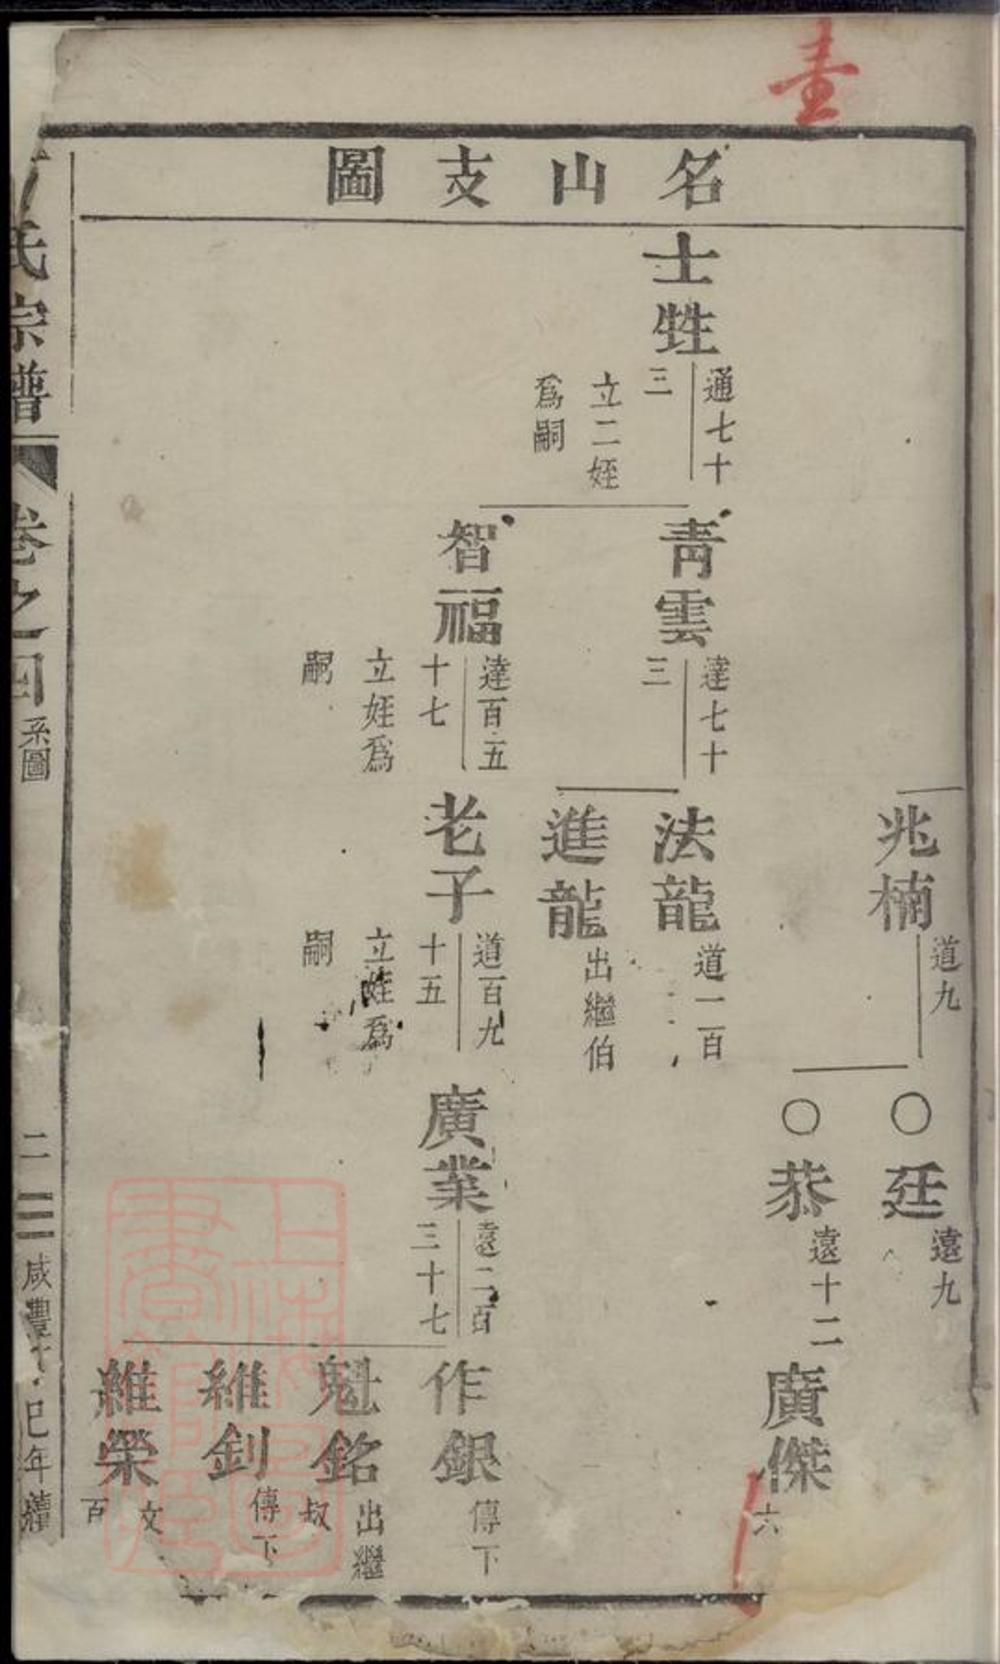 名山支圖
兆楠
道九
○廷
遠九
○恭
遠十二
廣傑
六
士甡
通七十
三
立二姪
爲嗣
靑雲
達七十
三
法龍
道一百
進龍
出繼伯
智福
達百五
十七
立姪爲
嗣
老子
道百九
十五
立姪爲
嗣
廣業
遠二百
三十七
作銀
傳下
魁銘
出繼
叔
維釗
傳下
維榮
文
百
氏宗譜
卷之四
系圖
二
咸豐
巳年續
上海圖書館藏